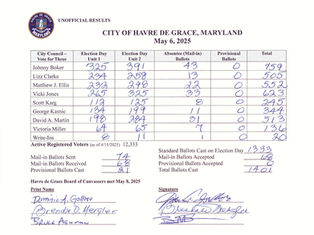 UNOFFICIAL RESULTS
CITY OF HAVRE DE GRACE, MARYLAND
May 6, 2025
City Council – Vote for Three Election Day Unit 1 Election Day Unit 2 Absentee (Mail-in) Ballots Provisional Ballots Total
Johnny Boker 325 391 43 0 759
Lizz Clarke 234 258 13 0 505
Matthew J. Ellis 233 298 22 0 553
Vicki Jones 265 325 33 0 623
Scott Karg 112 125 8 0 245
George Kamie 134 199 11 0 344
David A. Martin 198 284 31 0 513
Victoria Miller 64 65 7 0 136
Write-Ins 11 9 0 0 20
Active Registered Voters (as of 4/15/2025) 12,333
Standard Ballots Cast on Election Day 1333
Mail-in Ballots Sent 74
Mail-in Ballots Accepted 68
Mail-in Ballots Received 68
Provisional Ballots Accepted 0
Provisional Ballots Cast
Total Ballots Cast 1401
Havre de Grace Board of Canvassers met May 8, 2025
Print Name Signature
Brenda D. Hergler